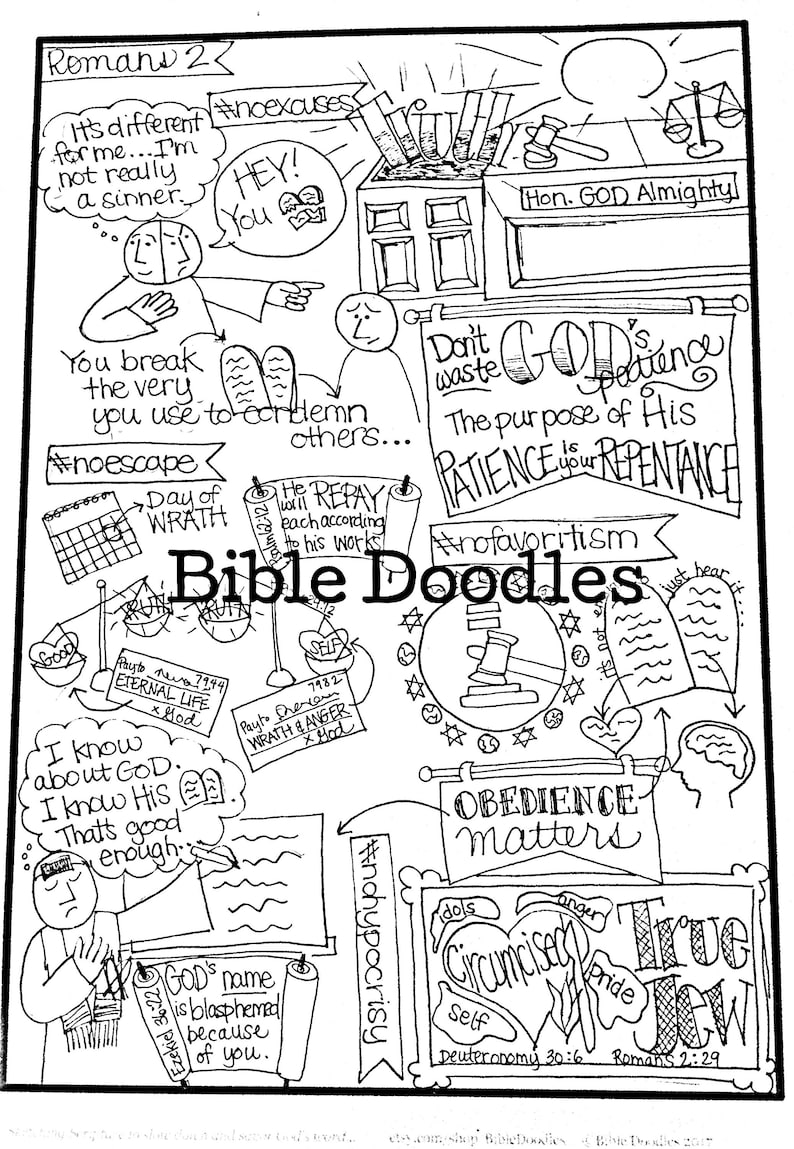 Romans 2
#noexcuses
Truth
It's different
for me...I'm
not really
a sinner.
HEY!
You
Hon. GOD Almighty
You break
the very
you use to condemn
others...
Don't
waste
GOD's
patience
The purpose of His
PATIENCE is your REPENTANCE
#noescape
Day of
WRATH
Psalm 62:12
He
will REPAY
each according
to his works
#nofavoritism
Bible Doodles
it's not
just hear it...
GOOD
SELF
Pay to
7944
ETERNAL LIFE
x God
7982
Pay to
WRATH & ANGER
x God
I know
about GOD.
I know HIS
That's good
enough...
OBEDIENCE
matters
#nohypocrisy
Ezekiel 36:22
GOD's name
is blasphemed
because
of you.
idols
anger
Circumcised
Pride
Self
True
Jew
Deuteronomy 30:6
Romans 2:29
Sketching Scripture to slow down and savor God's word...
etsy.com/shop/BibleDoodles
© Bible Doodles 2017